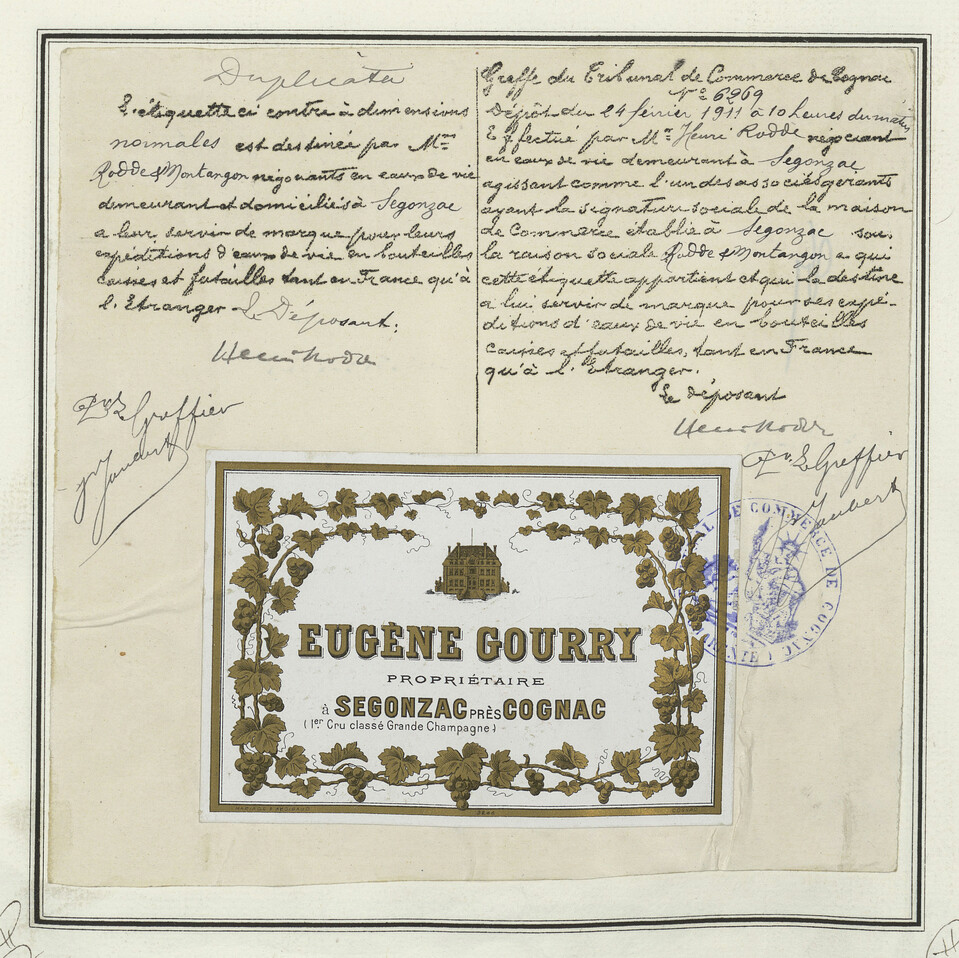 Duplicata
L'étiquette ci contre à dimensions
normales est destinée par Mrs
Rodde & Montangon négociants en eaux de vie
demeurant et domiciliés à Segonzac
a leur servir de marque pour leurs
expéditions d'eaux de vie en bouteilles
caisses et futailles tant en France qu'à
l'Etranger Le Déposant:
Henri Rodde
Pr Le Greffier
Joubert
Greffe du Tribunal de Commerce de Cognac
No 6969
Dépôt du 24 février 1911 à 10 heures du matin
Effectué par Mr Henri Rodde négociant
en eaux de vie demeurant à Segonzac
agissant comme l'un des associés gérants
ayant la signature sociale de la maison
de Commerce établie à Segonzac sous
la raison sociale Rodde & Montangon a qui
cette étiquette appartient et qui la destine
a lui servir de marque pour ses expé-
ditions d'eaux de vie en bouteilles
caisses et futailles, tant en France
qu'à l'Etranger.
Le déposant
Henri Rodde
Pr Le Greffier
Joubert
EUGÈNE GOURRY
PROPRIÉTAIRE
à SEGONZAC PRÈS COGNAC
(1er Cru classé Grande Champagne)
DE COMMERCE DE COGNAC